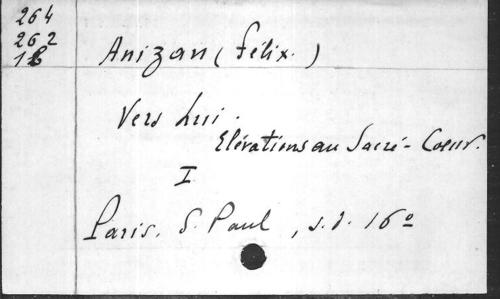 264
262
Anizan (Félix.)
Vers Lui.
Elévations au Sacré-Coeur.
I
Paris. S. Paul, s.d. 16º